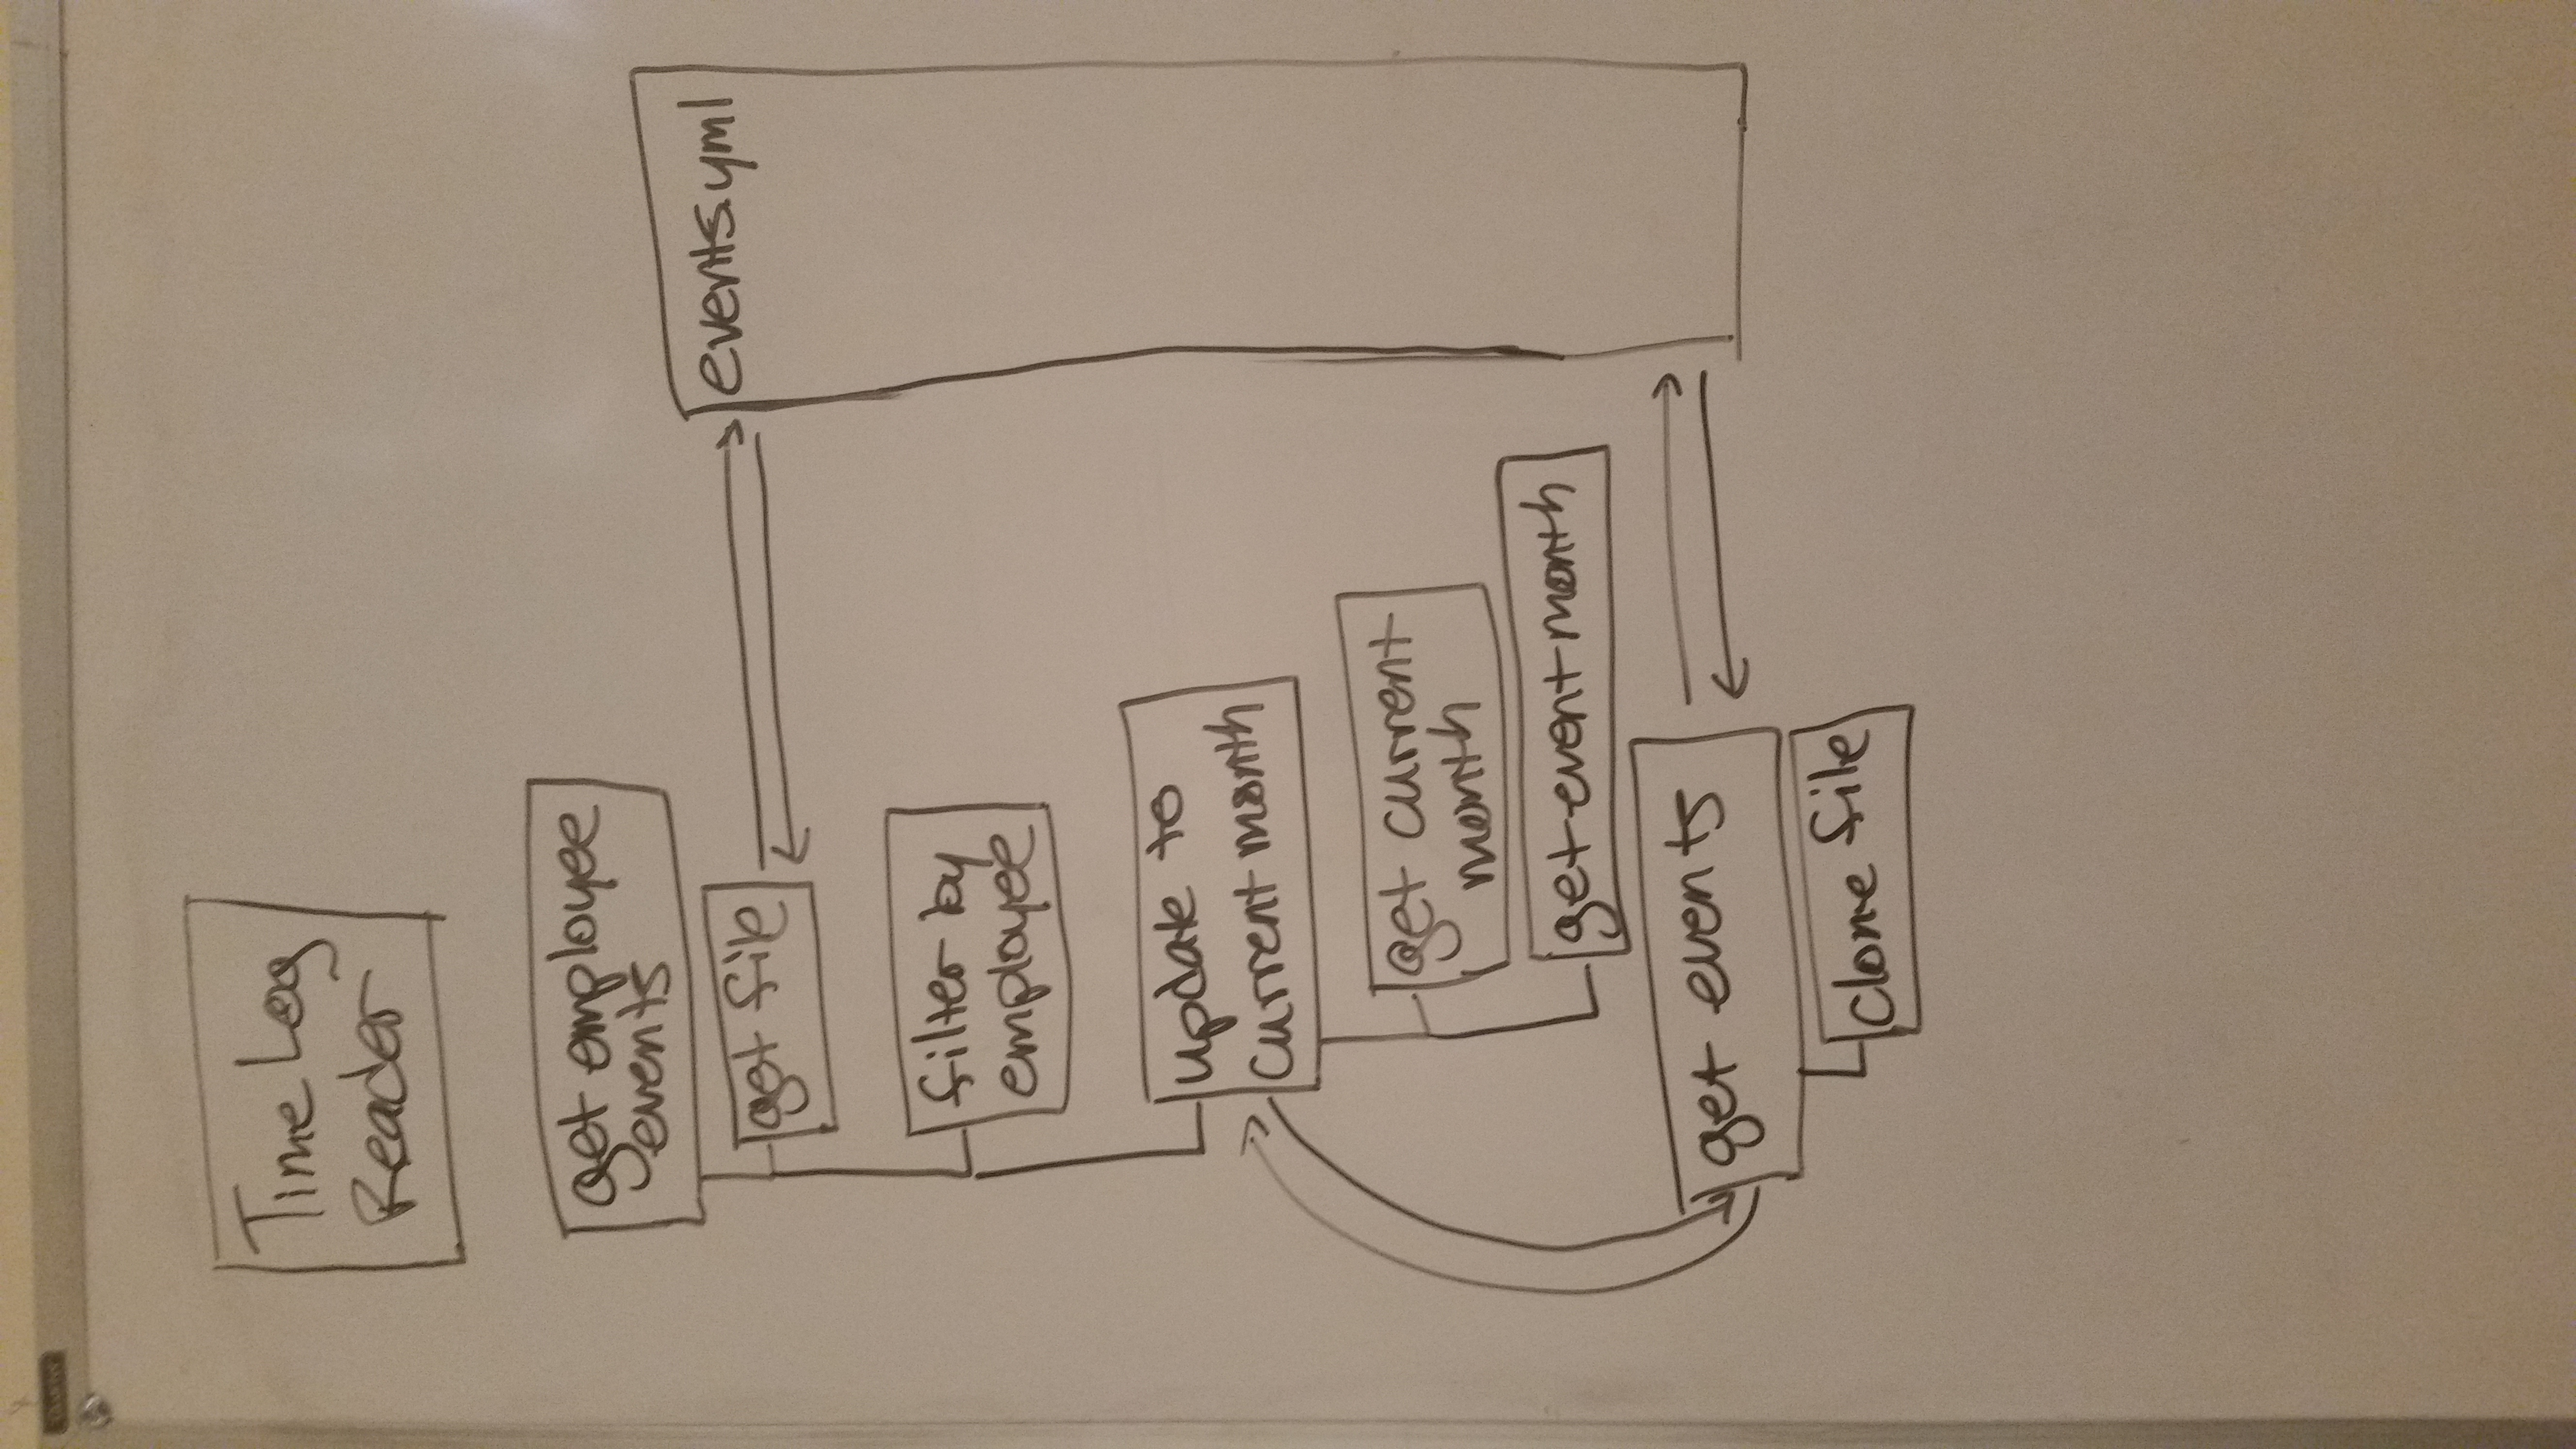 Time Log
Reader
get employee
events
get file
events.yml
filter by
employee
update to
current month
get current
month
get event month
get events
clone file